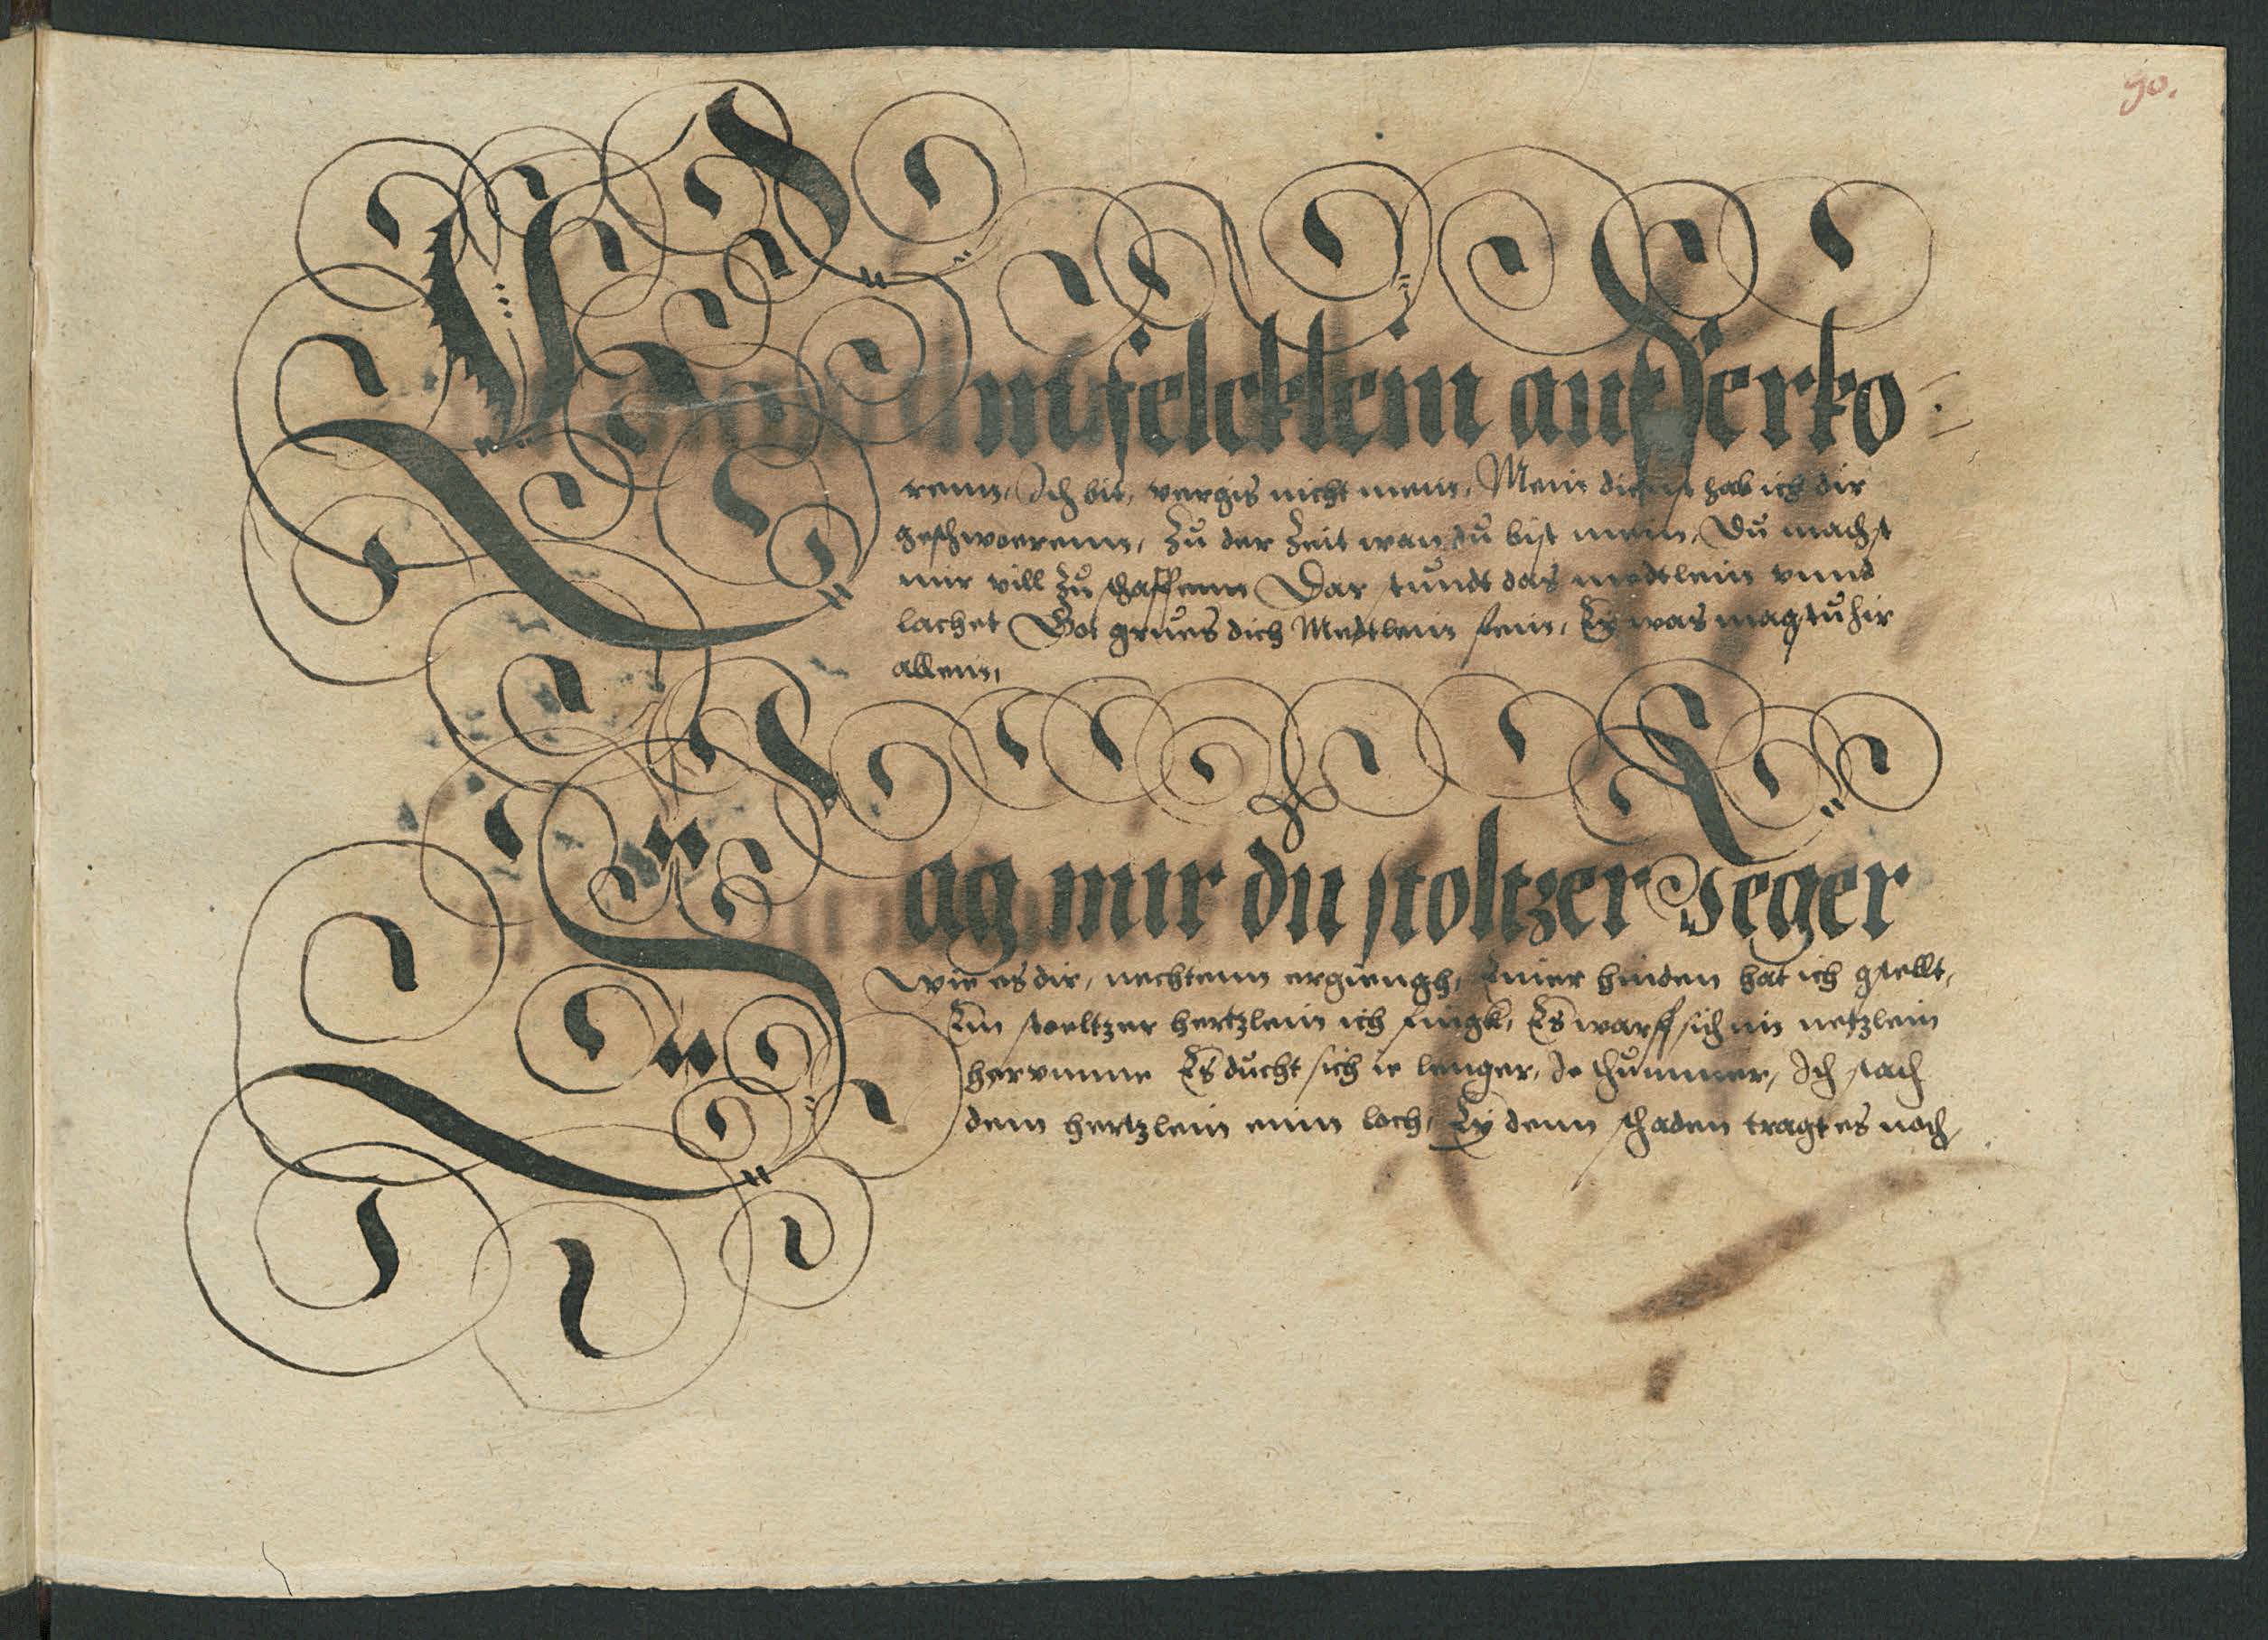 90.
Ein felcklein außerko-
renn, Ich bit, vergis nicht mein, Mein dienst hab ich dir
geschwoerenn, Zu der Zeit wan du bist mein, Du machst
mir vill zu schaffenn Dar stundt das medtlein vnnd
lachet Got grues dich Medtlein fein, Ey was magstu hir
allein,
Sag mir du stoltzer Jeger
Wie es dir, nechtenn ergiengh, Einer hinden hat ich gstellt,
Ein stoeltzer hertzlein ich fingk, Es warff sich im netzlein
hervmme Es ducht sich ie lenger, Je thummer, Ich stach
dem hertzlein einn loch, Ey denn schaden tragt es noch,